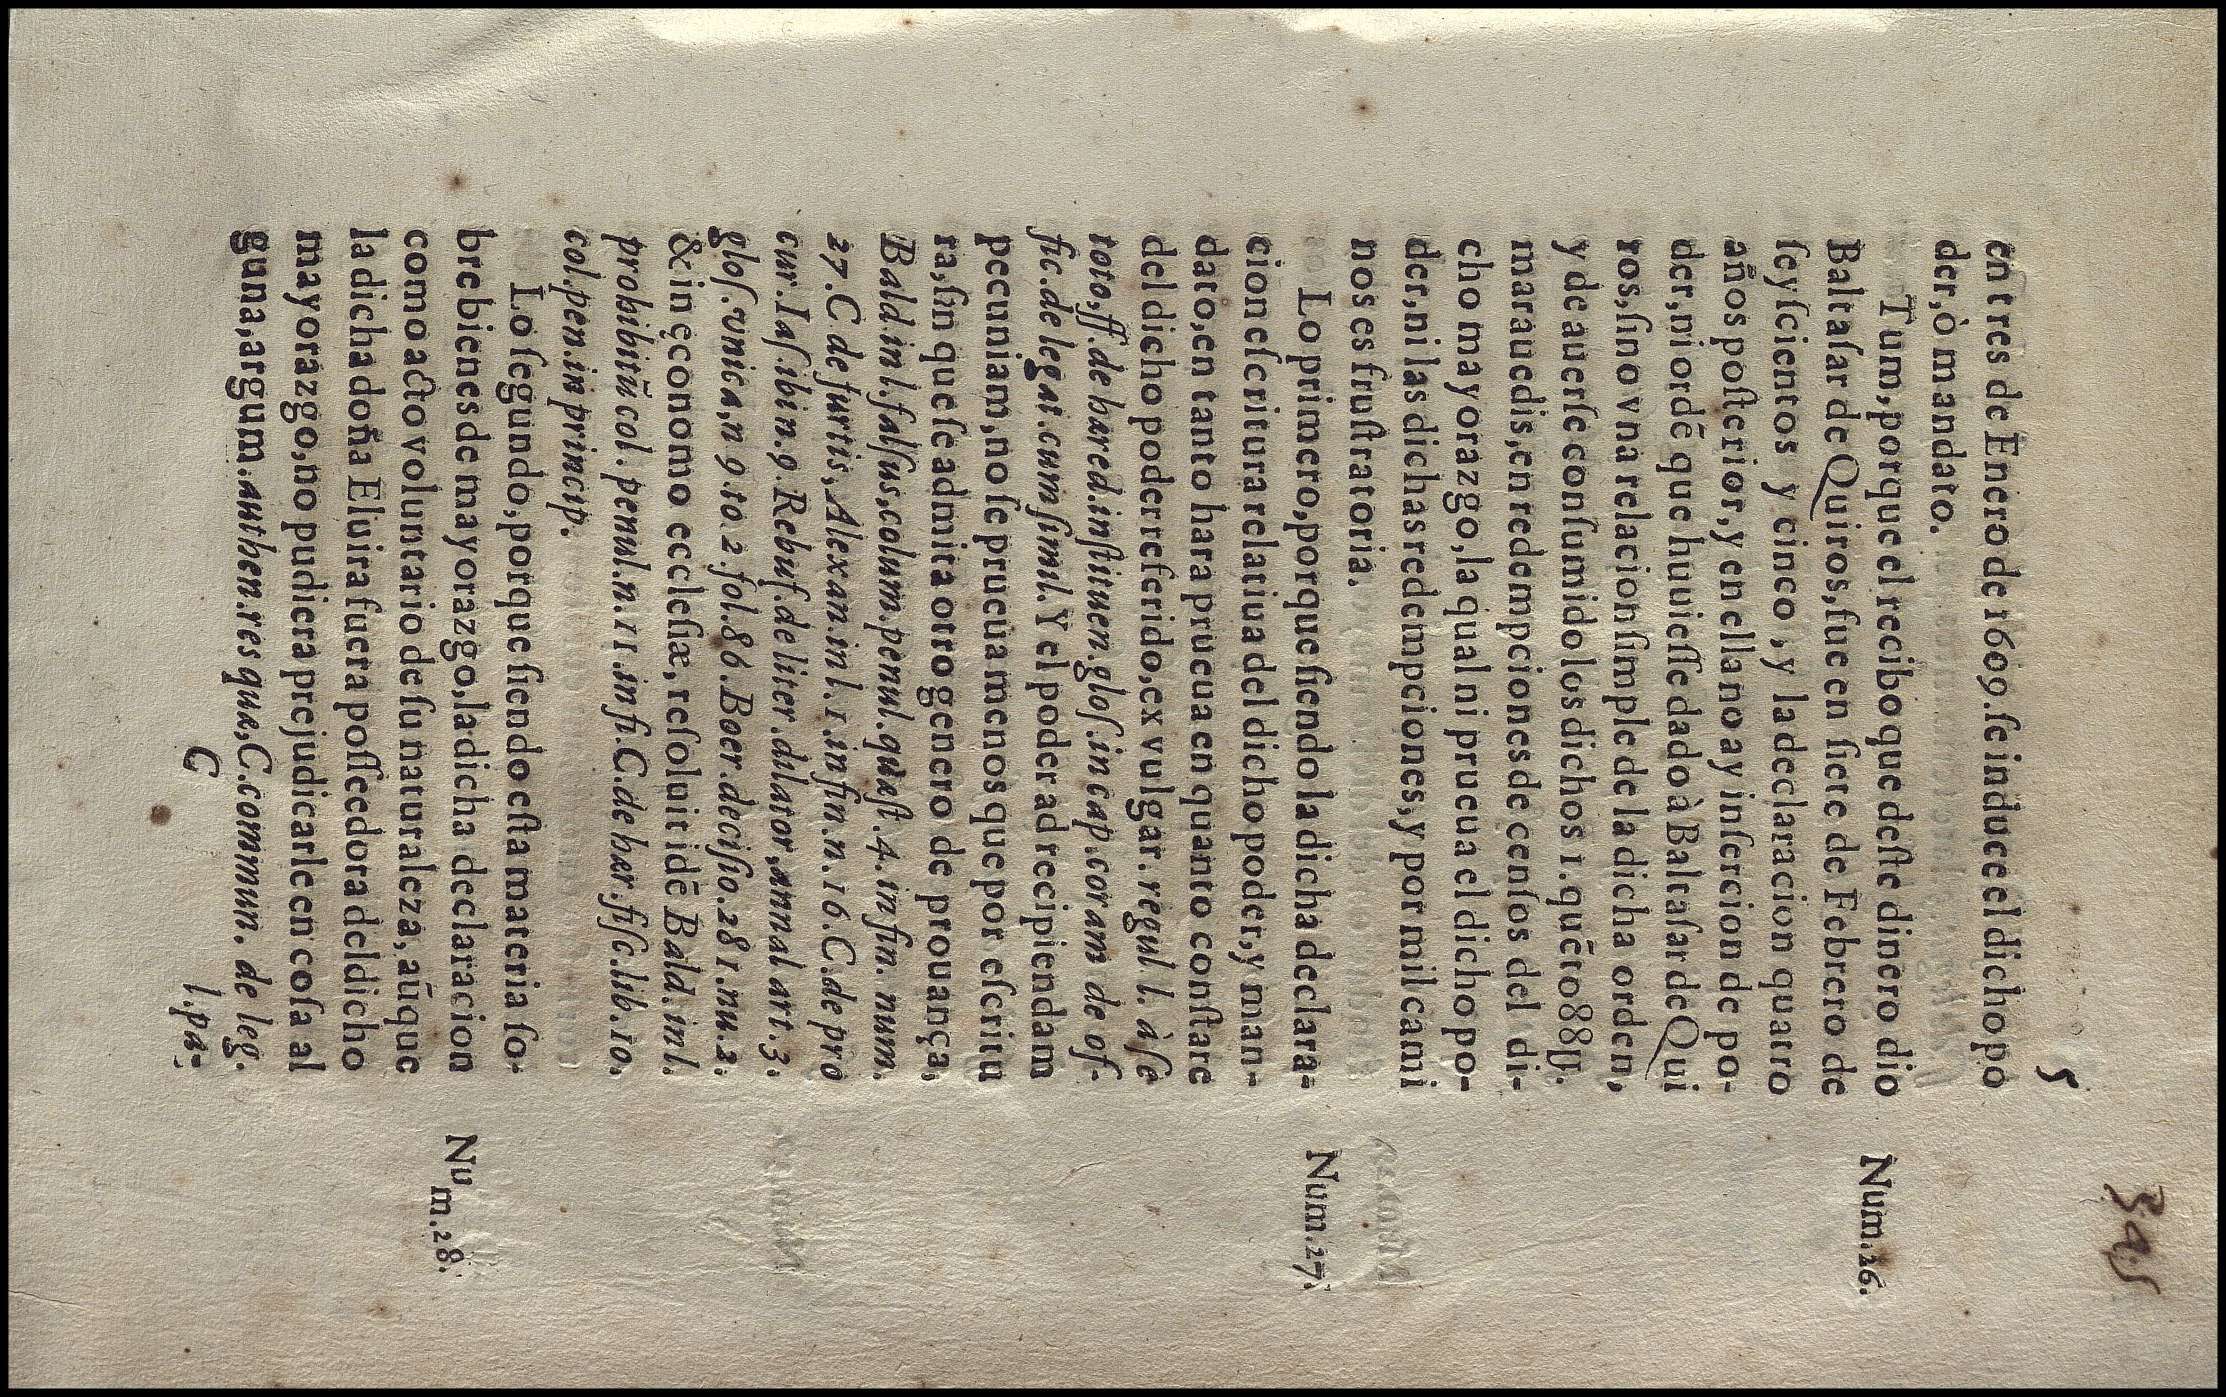 5
en tres de Enero de 1609. se induce el dicho po
der, ò mandato.
Tum, porque el recibo que deste dinero dio
Baltasar de Quiros, fue en siete de Febrero de
seyscientos y cinco, y la declaracion quatro
años posterior, y en ella no ay insercion de po-
der, ni ordē que huuiesse dado à Baltasar de Qui
ros, sino vna relacion simple de la dicha orden,
y de auerse consumido los dichos 1. quēto 88ꝑ.
marauedis, en redempciones de censos del di-
cho mayorazgo, la qual ni prueua el dicho po-
der, ni las dichas redempciones, y por mil cami
nos es frustratoria.
Lo primero, porque siendo la dicha declara-
cion escritura relatiua del dicho poder, y man-
dato, en tanto hara prueua en quanto constare
del dicho poder referido, ex vulgar. regul l. à se
toto, ff. de hæred. instituen. glos. in cap. coram de of-
fic. de legat. cum simil. Y el poder ad recipiendam
pecuniam, no se prueua menos que por escritu
ra, sin que se admita otro genero de prouança,
Bald. in l. falsus, colum. penul. quæst. 4. in fin. num.
27. C de furtis, Alexan. in l. 1. in fin. n. 16. C. de pro
cur. Ias. ibi n. 9. Rebuf. de liter. dilator, annal art. 3.
glos. vnica, n 9. to. 2. fol. 86. Boer. decisio. 281. nu. 2.
& in çconomo ecclesiæ, resoluit idē Bald. in l.
prohibitū col. penul. n. 11. in fi. C. de hær. fisc. lib. 10.
col. pen. in princip.
Lo segundo, porque siendo esta materia so-
bre bienes de mayorazgo, la dicha declaracion
como acto voluntario de su naturaleza, aūque
la dicha doña Eluira fuera posseedora del dicho
mayorazgo, no pudiera prejudicarle en cosa al
guna, argum. authen. res quæ, C. commun. de leg.
C
l. pa-
Num. 26.
Num. 27.
Num. 28.